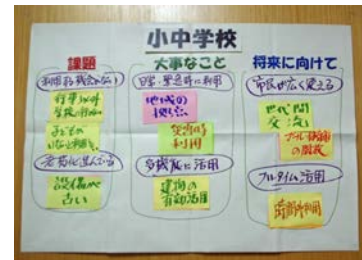 小中学校
課題
利用する機会がない
行事以外
学校に行かない
子どもの
いない時間
老朽化進んでいる
設備が
古い
大事なこと
日常・緊急時に利用
地域の
拠点
災害時
利用
多機能に活用
建物の
有効活用
将来に向けて
市民が広く使える
世代間
交流
プール・体育館
の開放
フルタイム活用
時間外利用